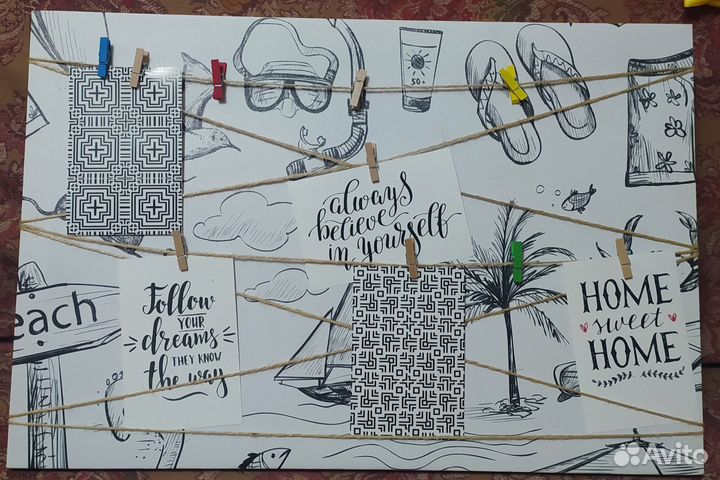 50+
always
believe
in yourself
each
Follow
YOUR
dreams
THEY KNOW
the way
HOME
sweet
HOME
Avito